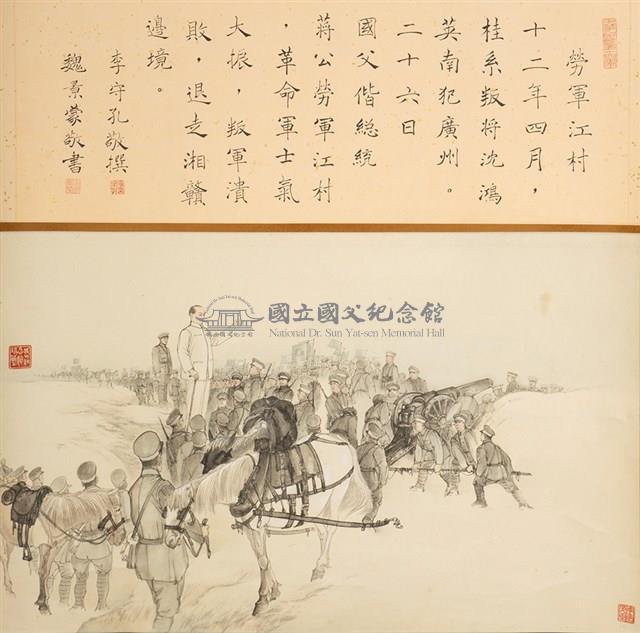 勞軍江村
十二年四月，
桂系叛將沈鴻
英南犯廣州。
二十六日
國父偕総統
蔣公勞軍江村
，革命軍士氣
大振，叛軍潰
敗，退走湘贛
邊境。
李守孔敬撰
魏景蒙敬書
國立國父紀念館
National Dr. Sun Yat-sen Memorial Hall